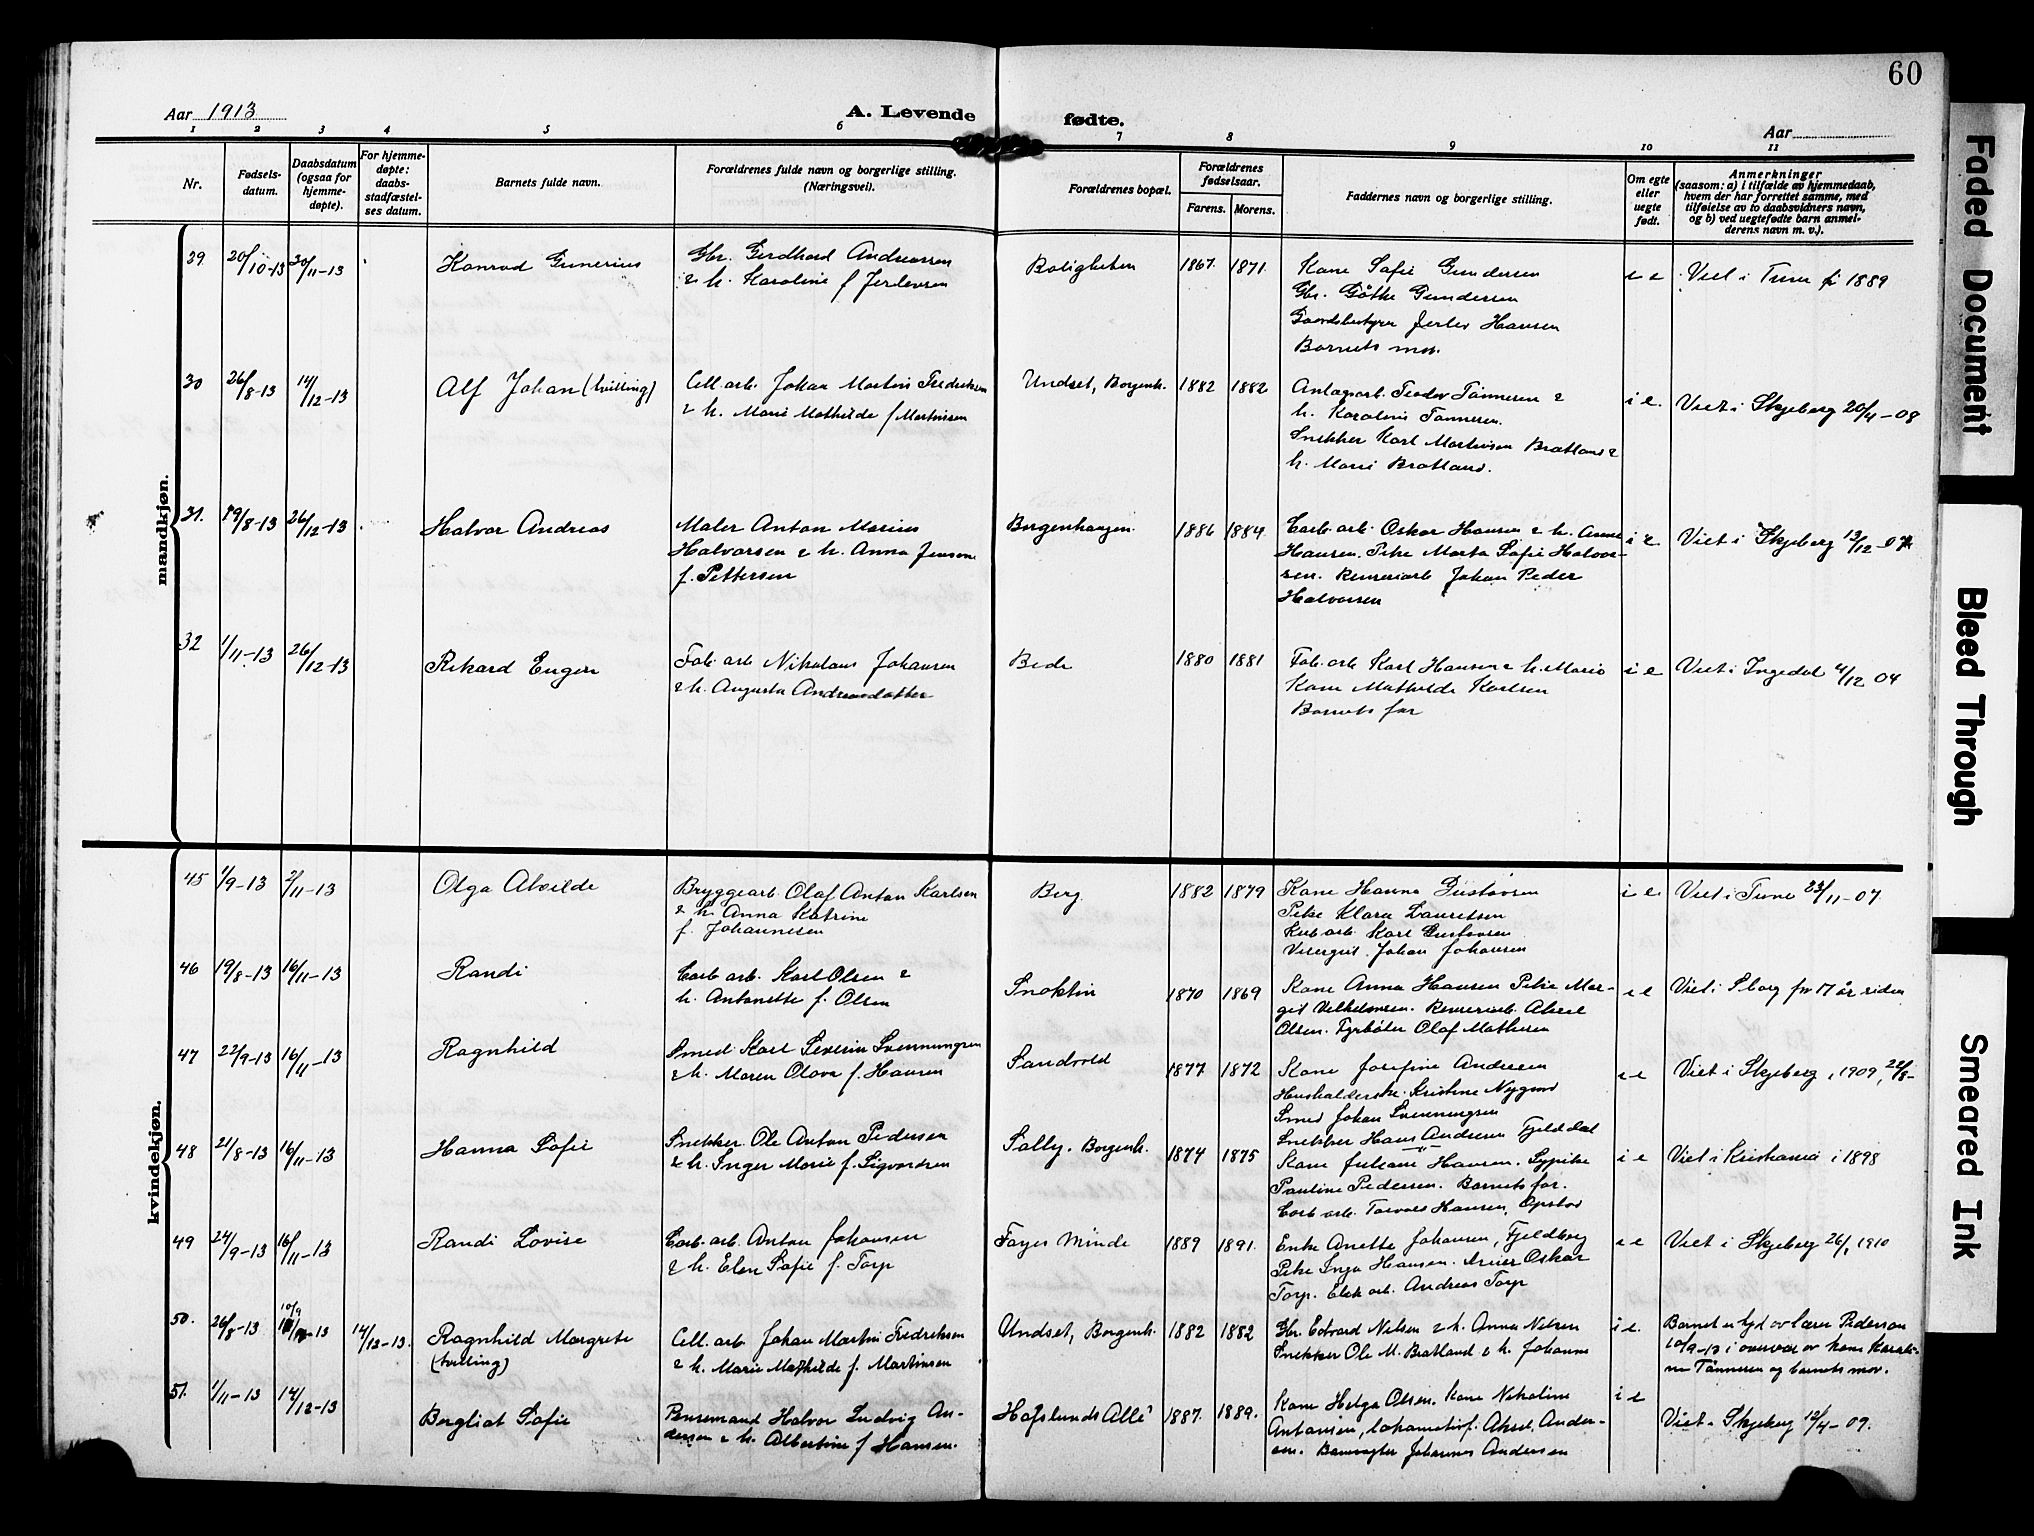 60
Aar 1913
A. Levende fødte.
Aar
1 2 3 4 5 6 7 8 9 10 11
Nr.
Fødsels-
datum.
Daabsdatum
(ogsaa for
hjemme-
døpte).
For hjemme-
døpte:
daabs-
stadfæstel-
ses datum.
Barnets fulde navn.
Forældrenes fulde navn og borgerlige stilling.
(Næringsvei).
Forældrenes bopæl.
Forældrenes
fødselsaar.
Farens. Morens.
Faddernes navn og borgerlige stilling.
Om egte
eller
uegte
født.
Anmerkninger
(saasom: a) i tilfælde av hjemmedaab,
hvem der har forrettet samme, med
tilføielse av to daabsvidners navn,
og b) ved uegtefødte barn anmel-
derens navn m. v.).
mandkjøn.
29 20/10-13 30/11-13
Konrad Gunerius
Gbr. Gerdhard Andreassen
& h. Karoline f.
Boligheten
1867. 1871.
Kone Sofie Gundersen
Gbr. Göthe Gundersen
Gaardsbestyrer Jerlev Hansen
Barnets mor.
e e
Viet i Tune 1889
30 26/8-13 14/12-13
Alf Johan (tvilling)
Cell. arb. Johan Martin Fredriksen
& h. Marie Mathilde f. Martinsen
Undset, Borgenh.
1882 1882
Teodor Tønnesen &
h. Karoline Tønnesen.
Snekker Karl Martinsen Bratland &
h. Marie Bratland.
i e.
Viet i Skjeberg 20/4-08
31. 19/8-13 26/12-13
Halvor Andreas
Maler Anton Marius
Halvorsen & h. Anna Jenson
f. Pettersen
Borgenhaugen.
1886 1884
Carb. arb. Oskar Hansen & h. Anne
Hansen. Pike Marta Sofie Halvor-
sen. Renseriarb. Johan Peder
Halvorsen
i e
Viet i Skjeberg 13/12-07
32 1/11-13 26/12-13
Rikard Eugen
Fab. arb. Nikolaus Johansen
& h. Augusta Andreasdatter
Bede
1880 1881
Fab. arb. Karl Hansen & h. Marie
Kone Mathilde Karlsen
Barnets far
i e
Viet i Ingedal 4/12 04
kvindekjøn.
45 1/9-13 2/11-13
Olga Alvilde
Bryggearb. Olaf Anton Karlsen
& h. Anna Katrine
f. Johannesen
Berg
1882 1879
Kone Hanna Gustavsen
Pike Klara Lauritsen
arb. Karl Gustavsen
Johan Johansen
i e
Viet i Tune 23/11-07.
46 19/8-13 16/11-13
Randi
Carb. arb. Karl Olsen &
h. Antonette f. Olsen
Snoktin
1870 1869
Kone Anna Hansen Pike Mar-
git Vilhelmsen. Renseriarb. Aksel
Olsen. Fyrbøter Olaf Mathisen
i e
Viet i Sborg for 17 år siden
47 22/9-13 16/11-13
Ragnhild
Smed Karl Severin Svenningsen
& h. Maren Olava f. Hansen
Sandvold
1877 1872
Kone Josefine Andresen
Husholderske Kristine Nygaard
Smed Johan Svenningsen
Snekker Hans Andresen Fjelddal
i e
Viet i Skjeberg, 1909, 28/8-
48 21/8-13 16/11-13
Hanna Sofie
Snekker Ole Anton Pedersen
& h. Inger Marie f. Sigvardsen
Solly. Borgenh.
1874 1875
Kone Juliane Hansen. Sypike
Pauline Pedersen. Barnets far.
Carb. arb. Torvald Hansen, Opstad
i e
Viet i Kristiania i 1898
49 24/9-13 16/11-13
Randi Lovise
Carb. arb. Anton Johansen
& h. Elen Sofie f. Torp
Fayes Minde
1889 1891.
Enke Anette Johansen, Fjeldberg
Pike Inga Hansen. Oskar
Torp. Elek. arb. Andreas Torp
i e
Viet i Skjeberg 26/1 1910
50. 26/8-13 10/9 -13 14/12-13.
Ragnhild Margrete
(tvilling)
Cell. arb. Johan Martin Fredriksen
& h. Marie Mathilde f. Martinsen
Undset, Borgenh.
1882 1882
Gbr. Edvard Nilsen & h. Anna Nilsen
Snekker Ole M. Bratland & h. Johanne
i e.
Barnet er hjd. av lærer Pederson
10/9-13 i overvær av kone Karoli-
ne Tønnesen og barnets mor.
51. 1/11-13 14/12-13
Bergliot Sofie
Brusemand Halvor Ludvig An-
dersen & h. Albertine f. Hansen.
Hafslunds Allé
1887. 1889.
Kone Helga Olsen. Kone Nikoline
Antonsen, Lokomotivf. Aksel Ander-
sen. Banevogter Johannes Andersen
i e
Viet i Skjeberg 12/4-09.
Faded Document
Bleed Through
Smeared Ink